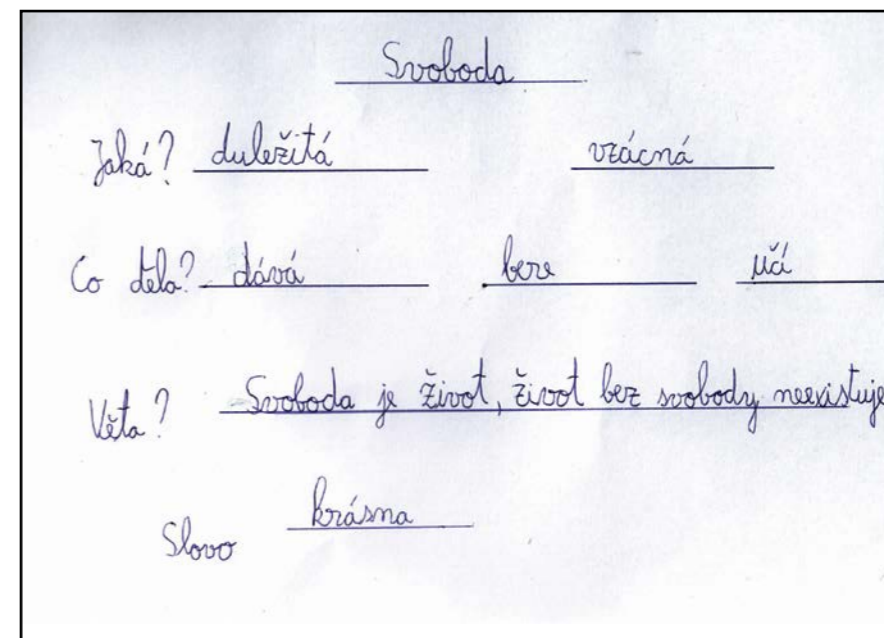 Svoboda
Jaká? duležitá vzácná
Co děla? dává bere učí
Věta? Svoboda je život, život bez svobody neexistuje
Slovo krásna